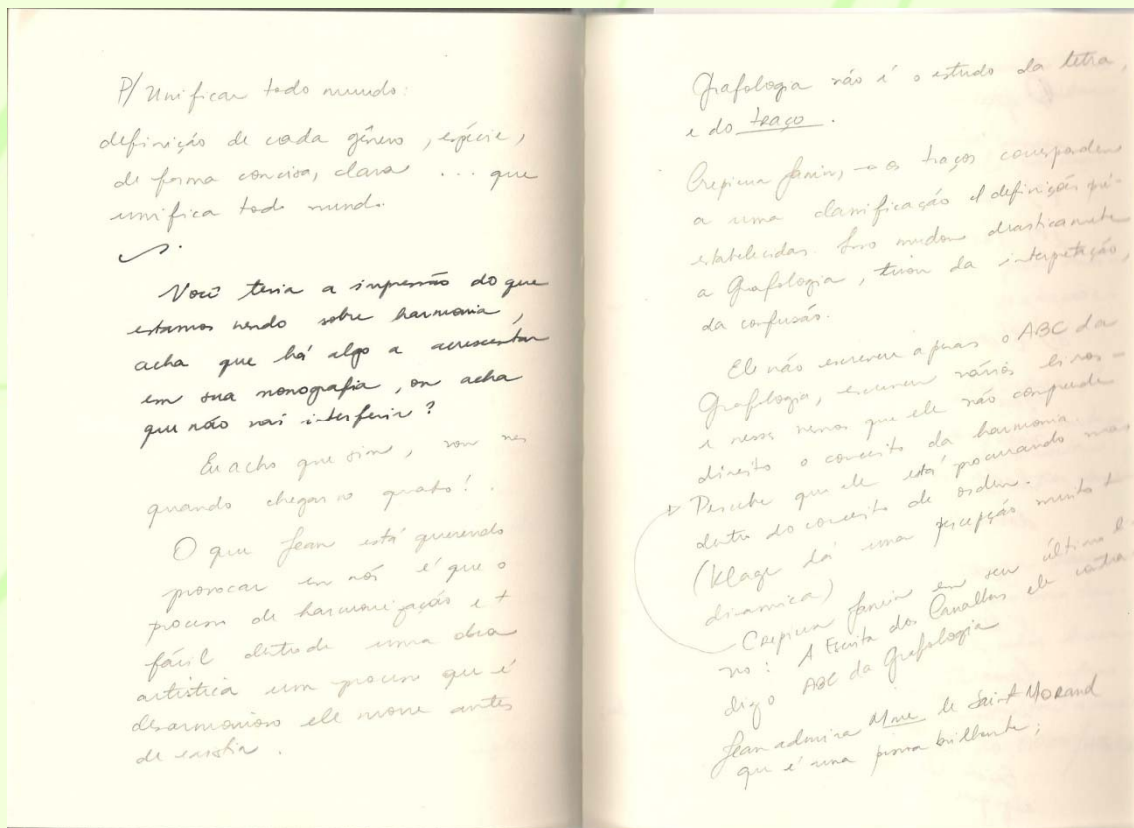 P/ Unificar todo mundo:
definição de cada gênero, espécie,
de forma concisa, clara ... que
unifica todo mundo.
Você teria a impressão do que
estamos vendo sobre harmonia,
acha que há algo a acrescentar
em sua monografia, ou acha
que não vai interferir?
Eu acho que sim, vou ver
quando chegar no quarto!.
O que Jean está querendo
provocar em nós é que o
processo de harmonização e +
fácil dentro de uma obra
artística um processo que é
desarmonioso ele morre antes
de existir.
Grafologia não é o estudo da letra,
e do traço.
Crepieux Jamin, → os traços correspondem
a uma classificação e definição pré-
estabelecidas. Isso mudou drasticamente
a Grafologia, tirou da interpretação,
da confusão.
Ele não escreveu apenas o ABC da
Grafologia, escreveu vários livros -
e nesses vemos que ele não compreende
direito o conceito da harmonia.
Percebe que ele está procurando mas
dentro do conceito de ordem.
(Klage dá uma percepção muito +
dinamica)
Crepieux Jamin em seu último li-
vro: A Escrita dos Canalhas ele contra
digo ABC da Grafologia
Jean admira Mme de Saint Morand
que é uma pessoa brilhante;